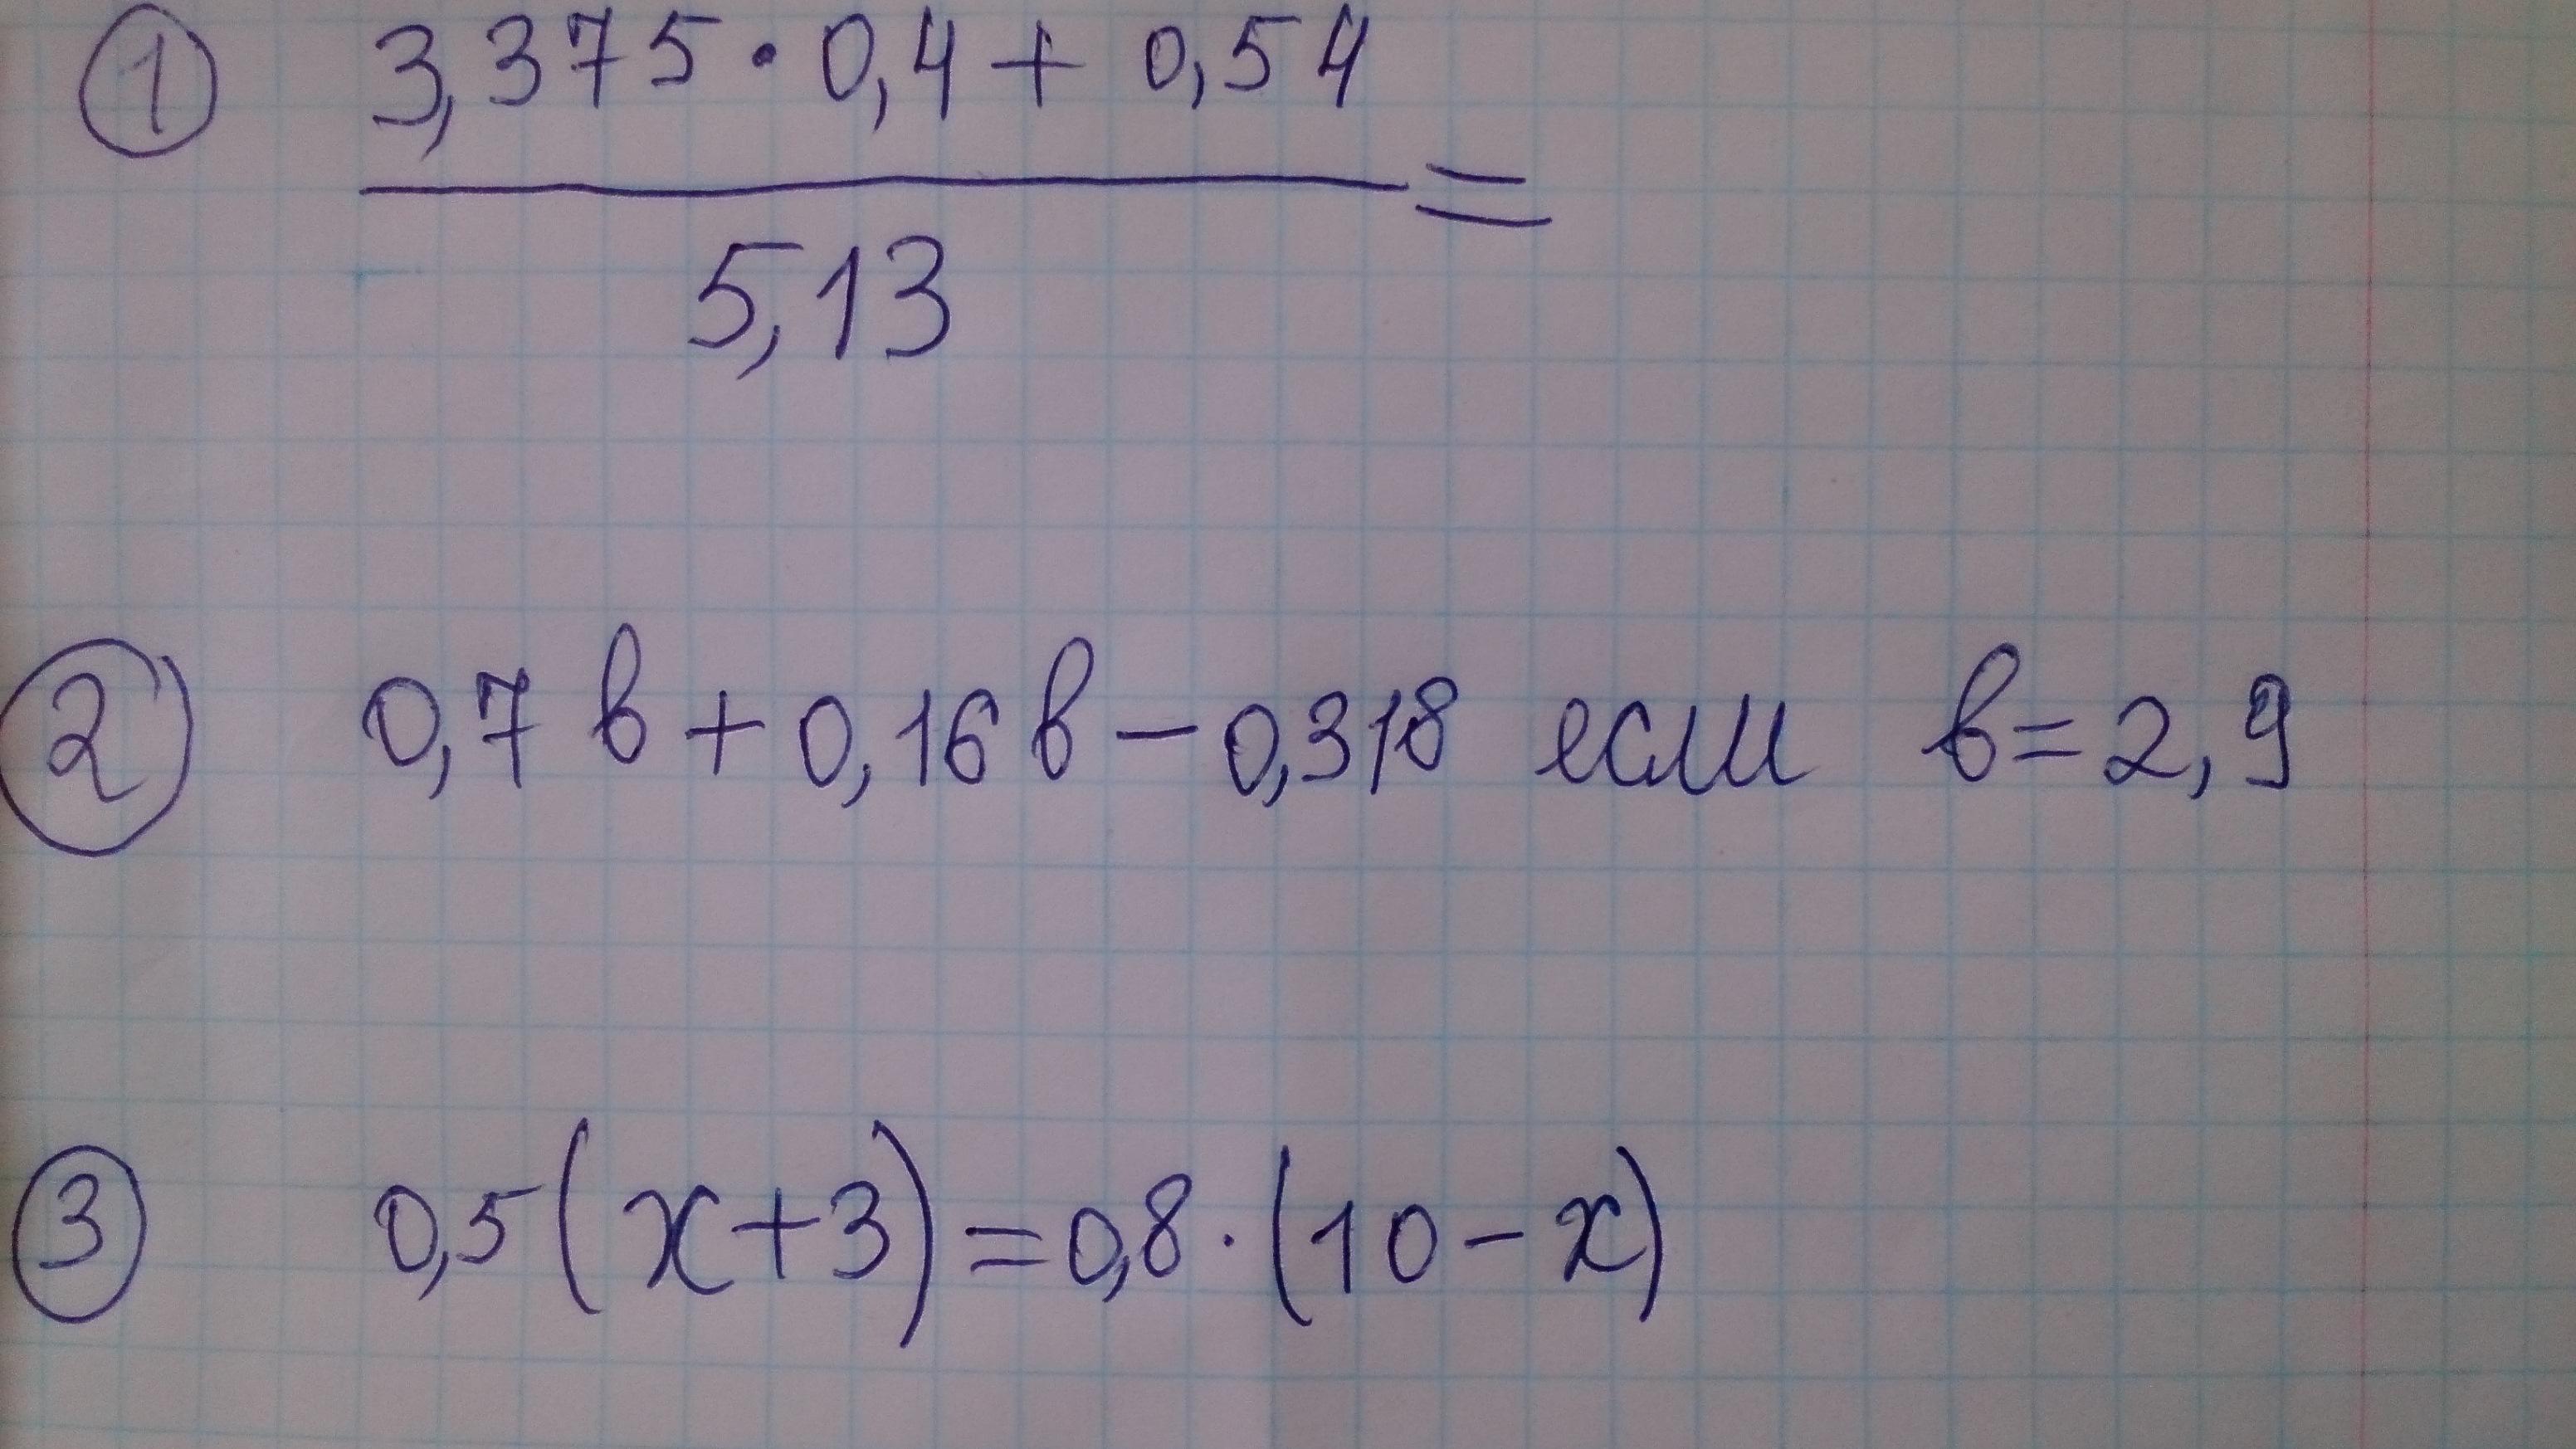 ① 3,375 · 0,4 + 0,54
=
5,13
② 0,7 в + 0,16 в − 0,318 если в = 2,9
③ 0,5 (х + 3) = 0,8 · (10 − х)